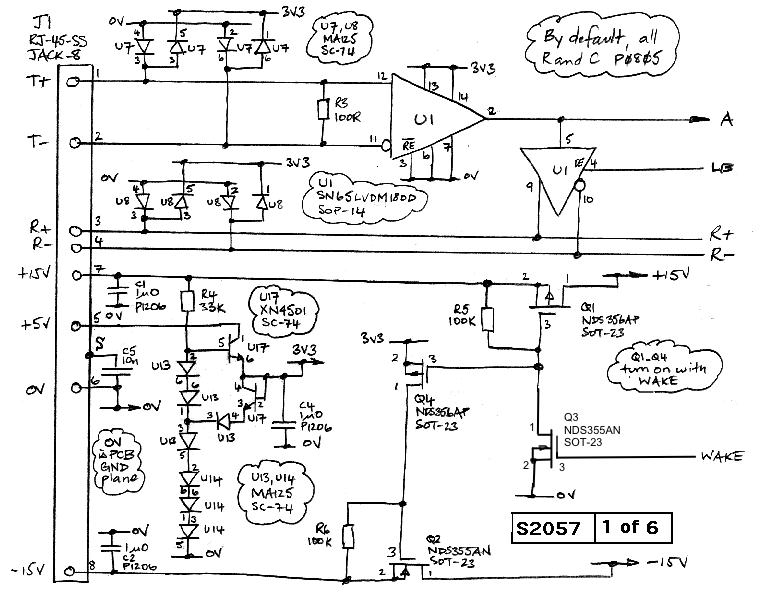 J1
RJ-45-SS
JACK-8
0V
3V3
U7, U8
MA125
SC-74
By default, all
R and C P0805
4
5
2
1
U7
U7
U7
U7
3
6
6
T+
1
12
13
14
3V3
R3
100R
U1
2
A
T-
2
11
RE
3
6
7
0V
5
U1
RE
4
LB
9
10
3V3
0V
4
5
2
1
U8
U8
U8
U8
3
3
6
6
U1
SN65LVDM180D
SOP-14
R+
3
R+
R-
4
R-
+15V
7
2
1
+15V
C1
1µ0
P1206
0V
R4
33K
U17
XN4501
SC-74
R5
100K
3
Q1
NDS356AP
SOT-23
+5V
5
5
1
U17
6
3V3
3V3
2
3
1
Q4
NDS356AP
SOT-23
Q1-Q4
turn on with
WAKE
S
C5
10n
6
0V
0V
U13
U13
U13
U13
U17
C4
1µ0
P1206
0V
Q3
NDS355AN
SOT-23
1
2
3
WAKE
0V
0V
is PCB
GND
plane
U13, U14
MA125
SC-74
U14
U14
U14
0V
S2057
1 of 6
0V
1µ0
C2
P1206
R6
100K
3
Q2
NDS355AN
SOT-23
-15V
8
2
1
-15V